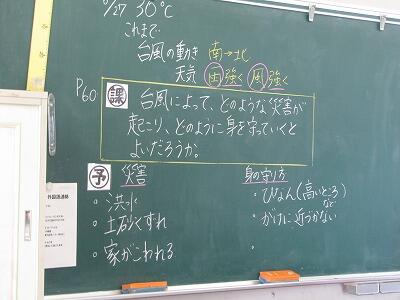 6/27 30℃
これまで
台風の動き 南→北
天気 雨強く 風強く
P60
課 台風によって、どのような災害が
起こり、どのように身を守っていくと
よいだろうか。
予 災害
・洪水
・土砂くずれ
・家がこわれる
身の守り方
・ひなん(高いところ)
など
・がけに近づかない
・